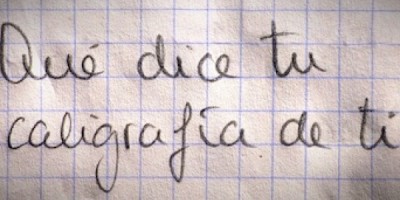 Qué dice tu
caligrafía de ti